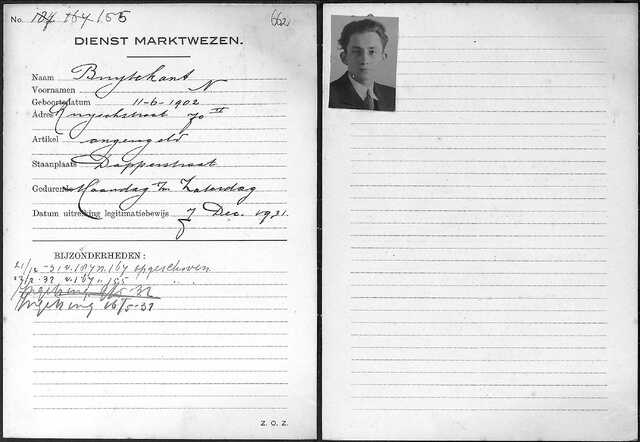 No. 184 167 155 662
DIENST MARKTWEZEN.
Naam Buytekant
Voornamen N
Geboortedatum 11-6-1902
Adres 70 II
Artikel ongeregeld
Staanplaats Dapperstraat
Gedurende Maandag t/m Zaterdag
Datum uitreiking legitimatiebewijs 7 Dec. 1931.
BIJZONDERHEDEN:
21/12-31 v. 184 n. 167 opgeschoven
23/2-32 v. 167 n. 155
16/5-32
Z. O. Z.